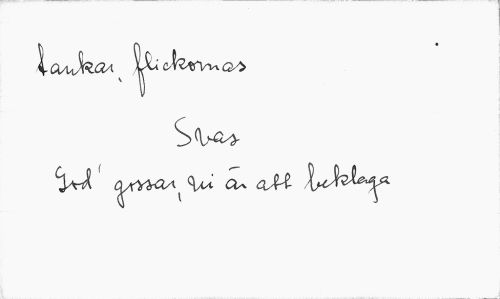 tankar, flickornas
Svas
God' gossar, ni är att beklaga